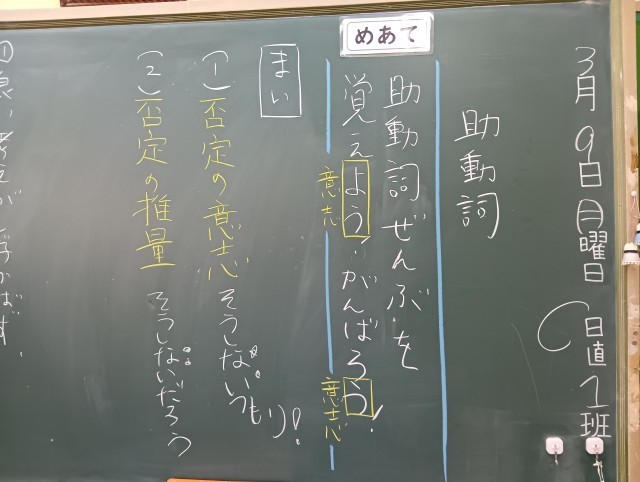 3月9日月曜日 日直1班
助動詞
めあて
助動詞ぜんぶを
覚えよう!がんばろう!
意志 意志
まい
(1)否定の意志 そうしないつもり!
(2)否定の推量 そうしないだろう